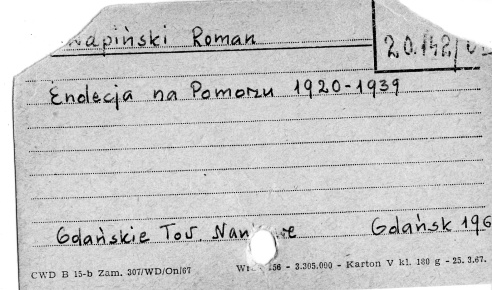 Wapiński Roman
20.142/
Endecja na Pomorzu 1920-1939
Gdańskie Tow. Gdańsk 196
CWD B 15-b Zam. 307/WD/On/67 156 - 3.305.000 - Karton V kl. 180 g - 25. 3.67.